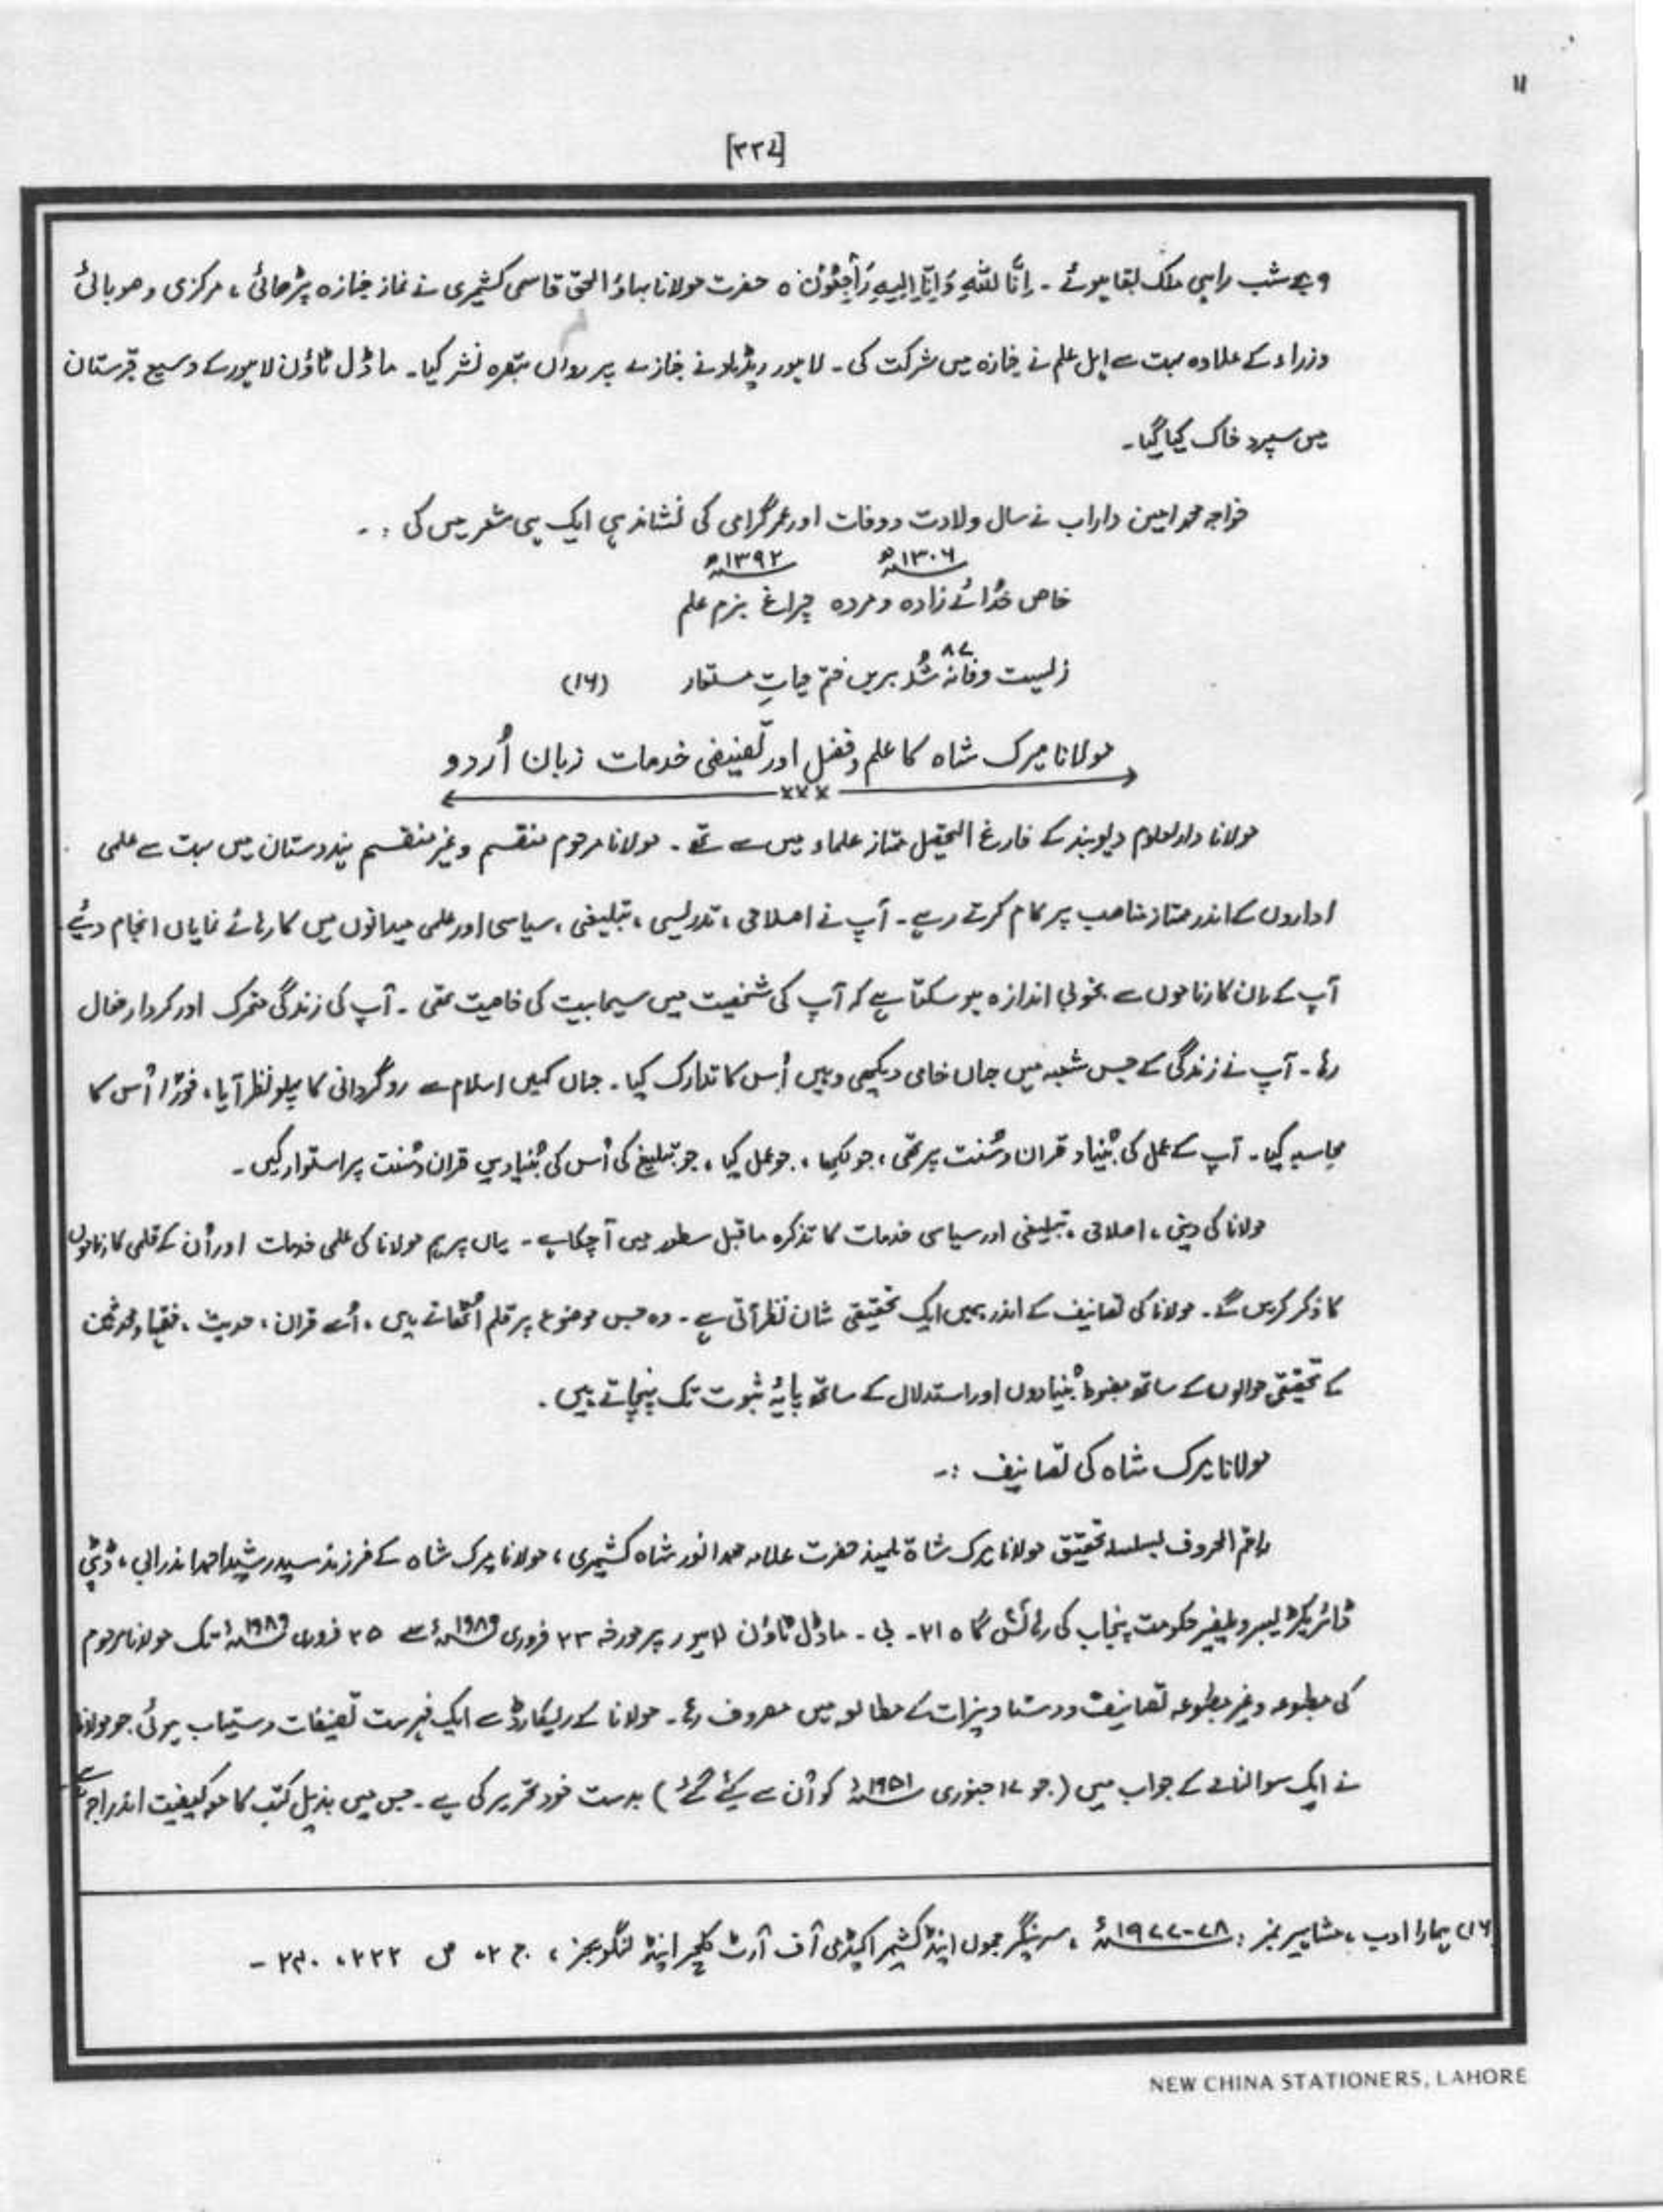 ۱۱
[۳۳۷]
۹ بجے شب راہی ملک بقا ہوئے ۔ اِنَّا لِلّٰہِ وَاِنَّا اِلَیہِ رَاجِعُوْنَ ہ حضرت مولانا بہاؤ الحق قاسمی کشمیری نے نماز جنازہ پڑھائی ، مرکزی و صوبائی
وزراء کے علاوہ بہت سے اہل علم نے جنازہ میں شرکت کی ۔ لاہور ریڈیو نے جنازے پر رواں تبصرہ نشر کیا ۔ ماڈل ٹاؤن لاہور کے وسیع قبرستان
میں سپرد خاک کیا گیا ۔
خواجہ محمد امین داراب نے سال ولادت و وفات اور عمر گرامی کی نشاندہی ایک ہی شعر میں کی : ۔
۱۳۰۶ھ ۱۳۹۲ھ
خاص خُدائے زادہ و مردہ چراغ بزم علم
۸۷
زلیست وفانہ شُد بریں ختم حیاتِ مستعار (۱۶)
مولانا میرک شاہ کا علم و فضل اور تصنیفی خدمات زبان اُردو
×××
مولانا دارالعلوم دیوبند کے فارغ التحصیل ممتاز علماء میں سے تھے ۔ مولانا مرحوم منقسم و غیر منقسم ہندوستان میں بہت سے علمی
اداروں کے اندر ممتاز مناصب پر کام کرتے رہے ۔ آپ نے اصلاحی ، تدریسی ، تبلیغی ، سیاسی اور علمی میدانوں میں کارہائے نمایاں انجام دیئے
آپ کے ان کارناموں سے بخوبی اندازہ ہو سکتا ہے کہ آپ کی شخصیت میں سیمابیت کی خاصیت تھی ۔ آپ کی زندگی متحرک اور کردار فعال
رہا ۔ آپ نے زندگی کے جس شعبہ میں جہاں خامی دیکھی وہیں اُس کا تدارک کیا ۔ جہاں کہیں اسلام سے روگردانی کا پہلو نظر آیا ، فوراً اُس کا
محاسبہ کیا ۔ آپ کے عمل کی بُنیاد قران و سُنت پر تھی ، جو لکھا ، جو عمل کیا ، جو تبلیغ کی اُس کی بُنیادیں قران و سُنت پر استوار کیں ۔
مولانا کی دینی ، اصلاحی ، تبلیغی اور سیاسی خدمات کا تذکرہ ماقبل سطور میں آ چکا ہے ۔ یہاں پر ہم مولانا کی علمی خدمات اور اُن کے قلمی کارناموں
کا ذکر کریں گے ۔ مولانا کی تصانیف کے اندر ہمیں ایک تحقیقی شان نظر آتی ہے ۔ وہ جس موضوع پر قلم اُٹھاتے ہیں ، اُسے قران ، حدیث ، فقہاء و محدثین
کے تحقیقی حوالوں کے ساتھ مضبوط بُنیادوں اور استدلال کے ساتھ پایۂ ثبوت تک پہنچاتے ہیں ۔
مولانا میرک شاہ کی تصانیف :۔
راقم الحروف بسلسلہ تحقیق مولانا میرک شاہ تلمیذ حضرت علامہ محمد انور شاہ کشمیری ، مولانا میرک شاہ کے فرزند سید رشید احمد اندرابی ، ڈپٹی
ڈائریکٹر لیبر ویلفیر حکومت پنجاب کی رہائش گاہ ۲۱۔ بی ۔ ماڈل ٹاؤن لاہور پر مورخہ ۲۳ فروری ۱۹۸۹ء سے ۲۵ فروری ۱۹۸۹ء تک مولانا مرحوم
کی مطبوعہ و غیر مطبوعہ تصانیف و دستاویزات کے مطالعہ میں مصروف رہا ۔ مولانا کے ریکارڈ سے ایک فہرست تصنیفات دستیاب ہوئی جو مولانا
نے ایک سوالنامے کے جواب میں ( جو ۱۷ جنوری ۱۹۵۱ء کو اُن سے کیے گئے ) بدست خود تحریر کی ہے ۔ جس میں بذیل کتب کا مع کیفیت اندراج ہے
(۱۶) ہمارا ادب ، مشاہیر نمبر : ۷۸-۱۹۷۷ء ، سرینگر جموں اینڈ کشمیر اکیڈمی آف آرٹ کلچر اینڈ لنگویجز ، ج ۲، ص ۲۲۲، ۲۳۰ -
NEW CHINA STATIONERS, LAHORE